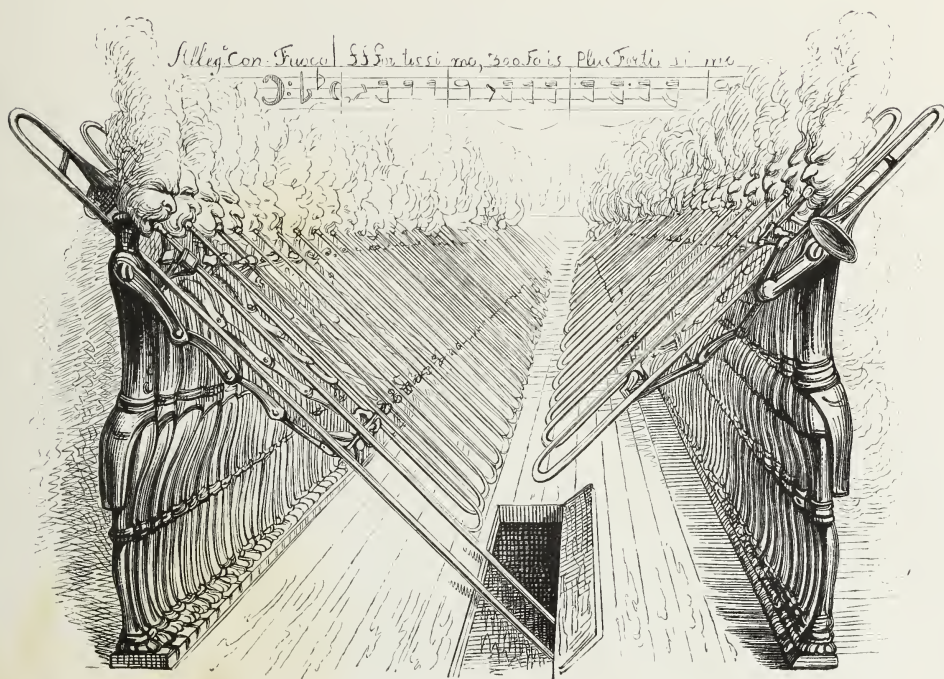 Allegº Con-Fuoco ff fortissimo, 300 Fois Plus Fortissimo